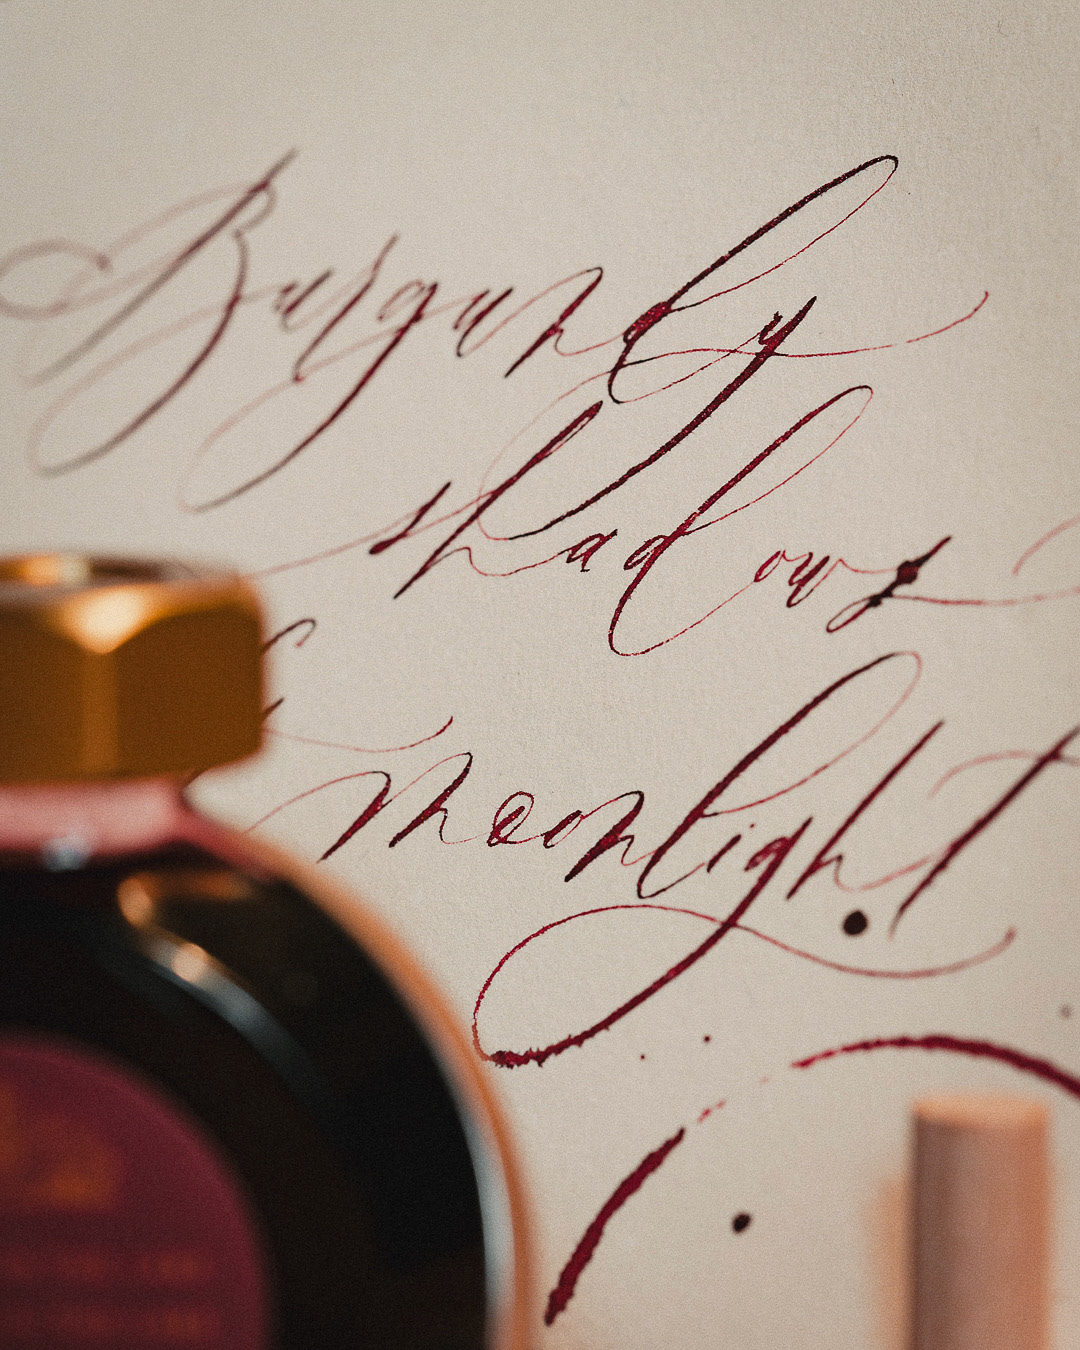 Burgundy
shadows
moonlight